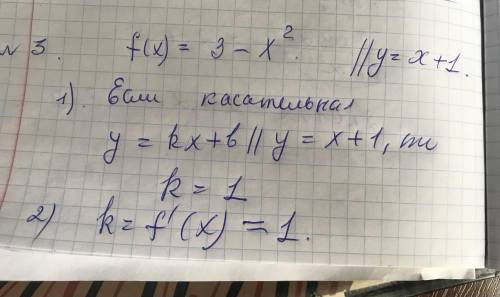 № 3. f(x) = 3 - x². // y = x + 1.
1). Если касательная
y = kx + b // y = x + 1, то
k = 1
2) k = f'(x) = 1.